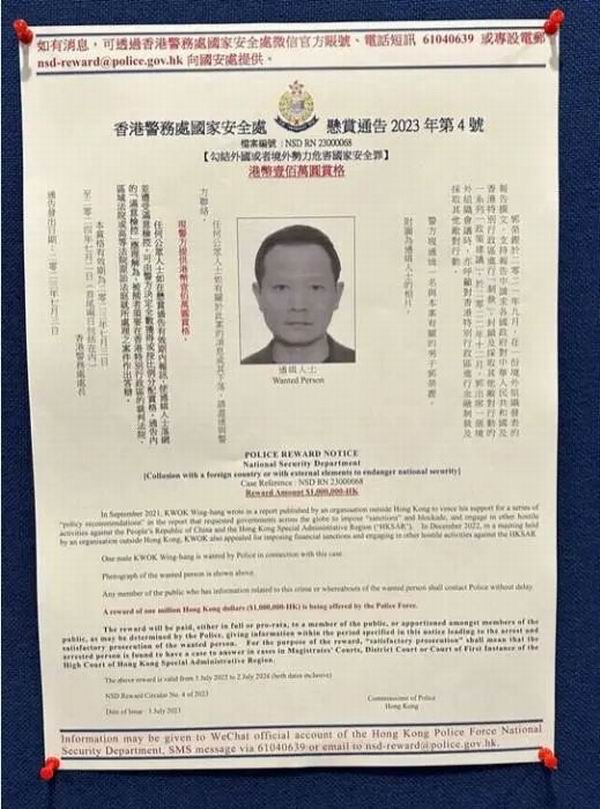 如有消息，可透過香港警務處國家安全處微信官方賬號、電話短訊 61040639 或專設電郵
nsd-reward@police.gov.hk 向國安處提供。
香港警務處國家安全處 懸賞通告 2023 年第 4 號
檔案編號：NSD RN 23000068
【勾結外國或者境外勢力危害國家安全罪】
港幣壹佰萬圓賞格
郭榮鏗於二〇二一年九月，在一份境外組織發表的
報告撰文，支持報告中請求各國政府對中華人民共和國及
香港特別行政區進行「制裁」、封鎖及採取其他敵對行動的
一系列「政策建議」；於二〇二二年十二月，郭出席一個境
外組織會議時，亦呼籲對香港特別行政區進行金融制裁及
採取其他敵對行動。
警方現通緝一名與本案有關的男子郭榮鏗。
附圖為通緝人士的相片。
任何公眾人士如有關於此案的消息或其下落，請盡速與警
方聯絡。
現警方提供港幣壹佰萬圓賞格。
任何公眾人士如在懸賞通告有效期內報訊，使通緝人士落網
並遭受滿意檢控，可由警方決定全數獲得或按比例分配賞格。通告內
的「滿意檢控」應理解為，被捕者須要在香港特別行政區的裁判法院、
區域法院或高等法院原訟法庭就所處理之案件作出答辯。
本賞格有效期為二〇二三年七月三日
至二〇二四年七月二日（首尾兩日包括在內）
香港警務處處長
通告發出日期：二〇二三年七月三日
通緝人士
Wanted Person
POLICE REWARD NOTICE
National Security Department
[Collusion with a foreign country or with external elements to endanger national security]
Case Reference : NSD RN 23000068
Reward Amount $1,000,000-HK
In September 2021, KWOK Wing-hang wrote in a report published by an organisation outside Hong Kong to voice his support for a series of
"policy recommendations" in the report that requested governments across the globe to impose "sanctions" and blockade, and engage in other hostile
activities against the People's Republic of China and the Hong Kong Special Administrative Region ("HKSAR"). In December 2022, in a meeting held
by an organisation outside Hong Kong, KWOK also appealed for imposing financial sanctions and engaging in other hostile activities against the HKSAR.
One male KWOK Wing-hang is wanted by Police in connection with this case.
Photograph of the wanted person is shown above.
Any member of the public who has information related to this crime or whereabouts of the wanted person shall contact Police without delay.
A reward of one million Hong Kong dollars ($1,000,000-HK) is being offered by the Police Force.
The reward will be paid, either in full or pro-rata, to a member of the public, or apportioned amongst members of the
public, as may be determined by the Police, giving information within the period specified in this notice leading to the arrest and
satisfactory prosecution of the wanted person. For the purpose of the reward, "satisfactory prosecution" shall mean that the
arrested person is found to have a case to answer in cases in Magistrates' Courts, District Court or Court of First Instance of the
High Court of Hong Kong Special Administrative Region.
The above reward is valid from 3 July 2023 to 2 July 2024 (both dates inclusive)
NSD Reward Circular No. 4 of 2023
Commissioner of Police
Hong Kong
Date of Issue : 3 July 2023
Information may be given to WeChat official account of the Hong Kong Police Force National
Security Department, SMS message via 61040639 or email to nsd-reward@police.gov.hk.